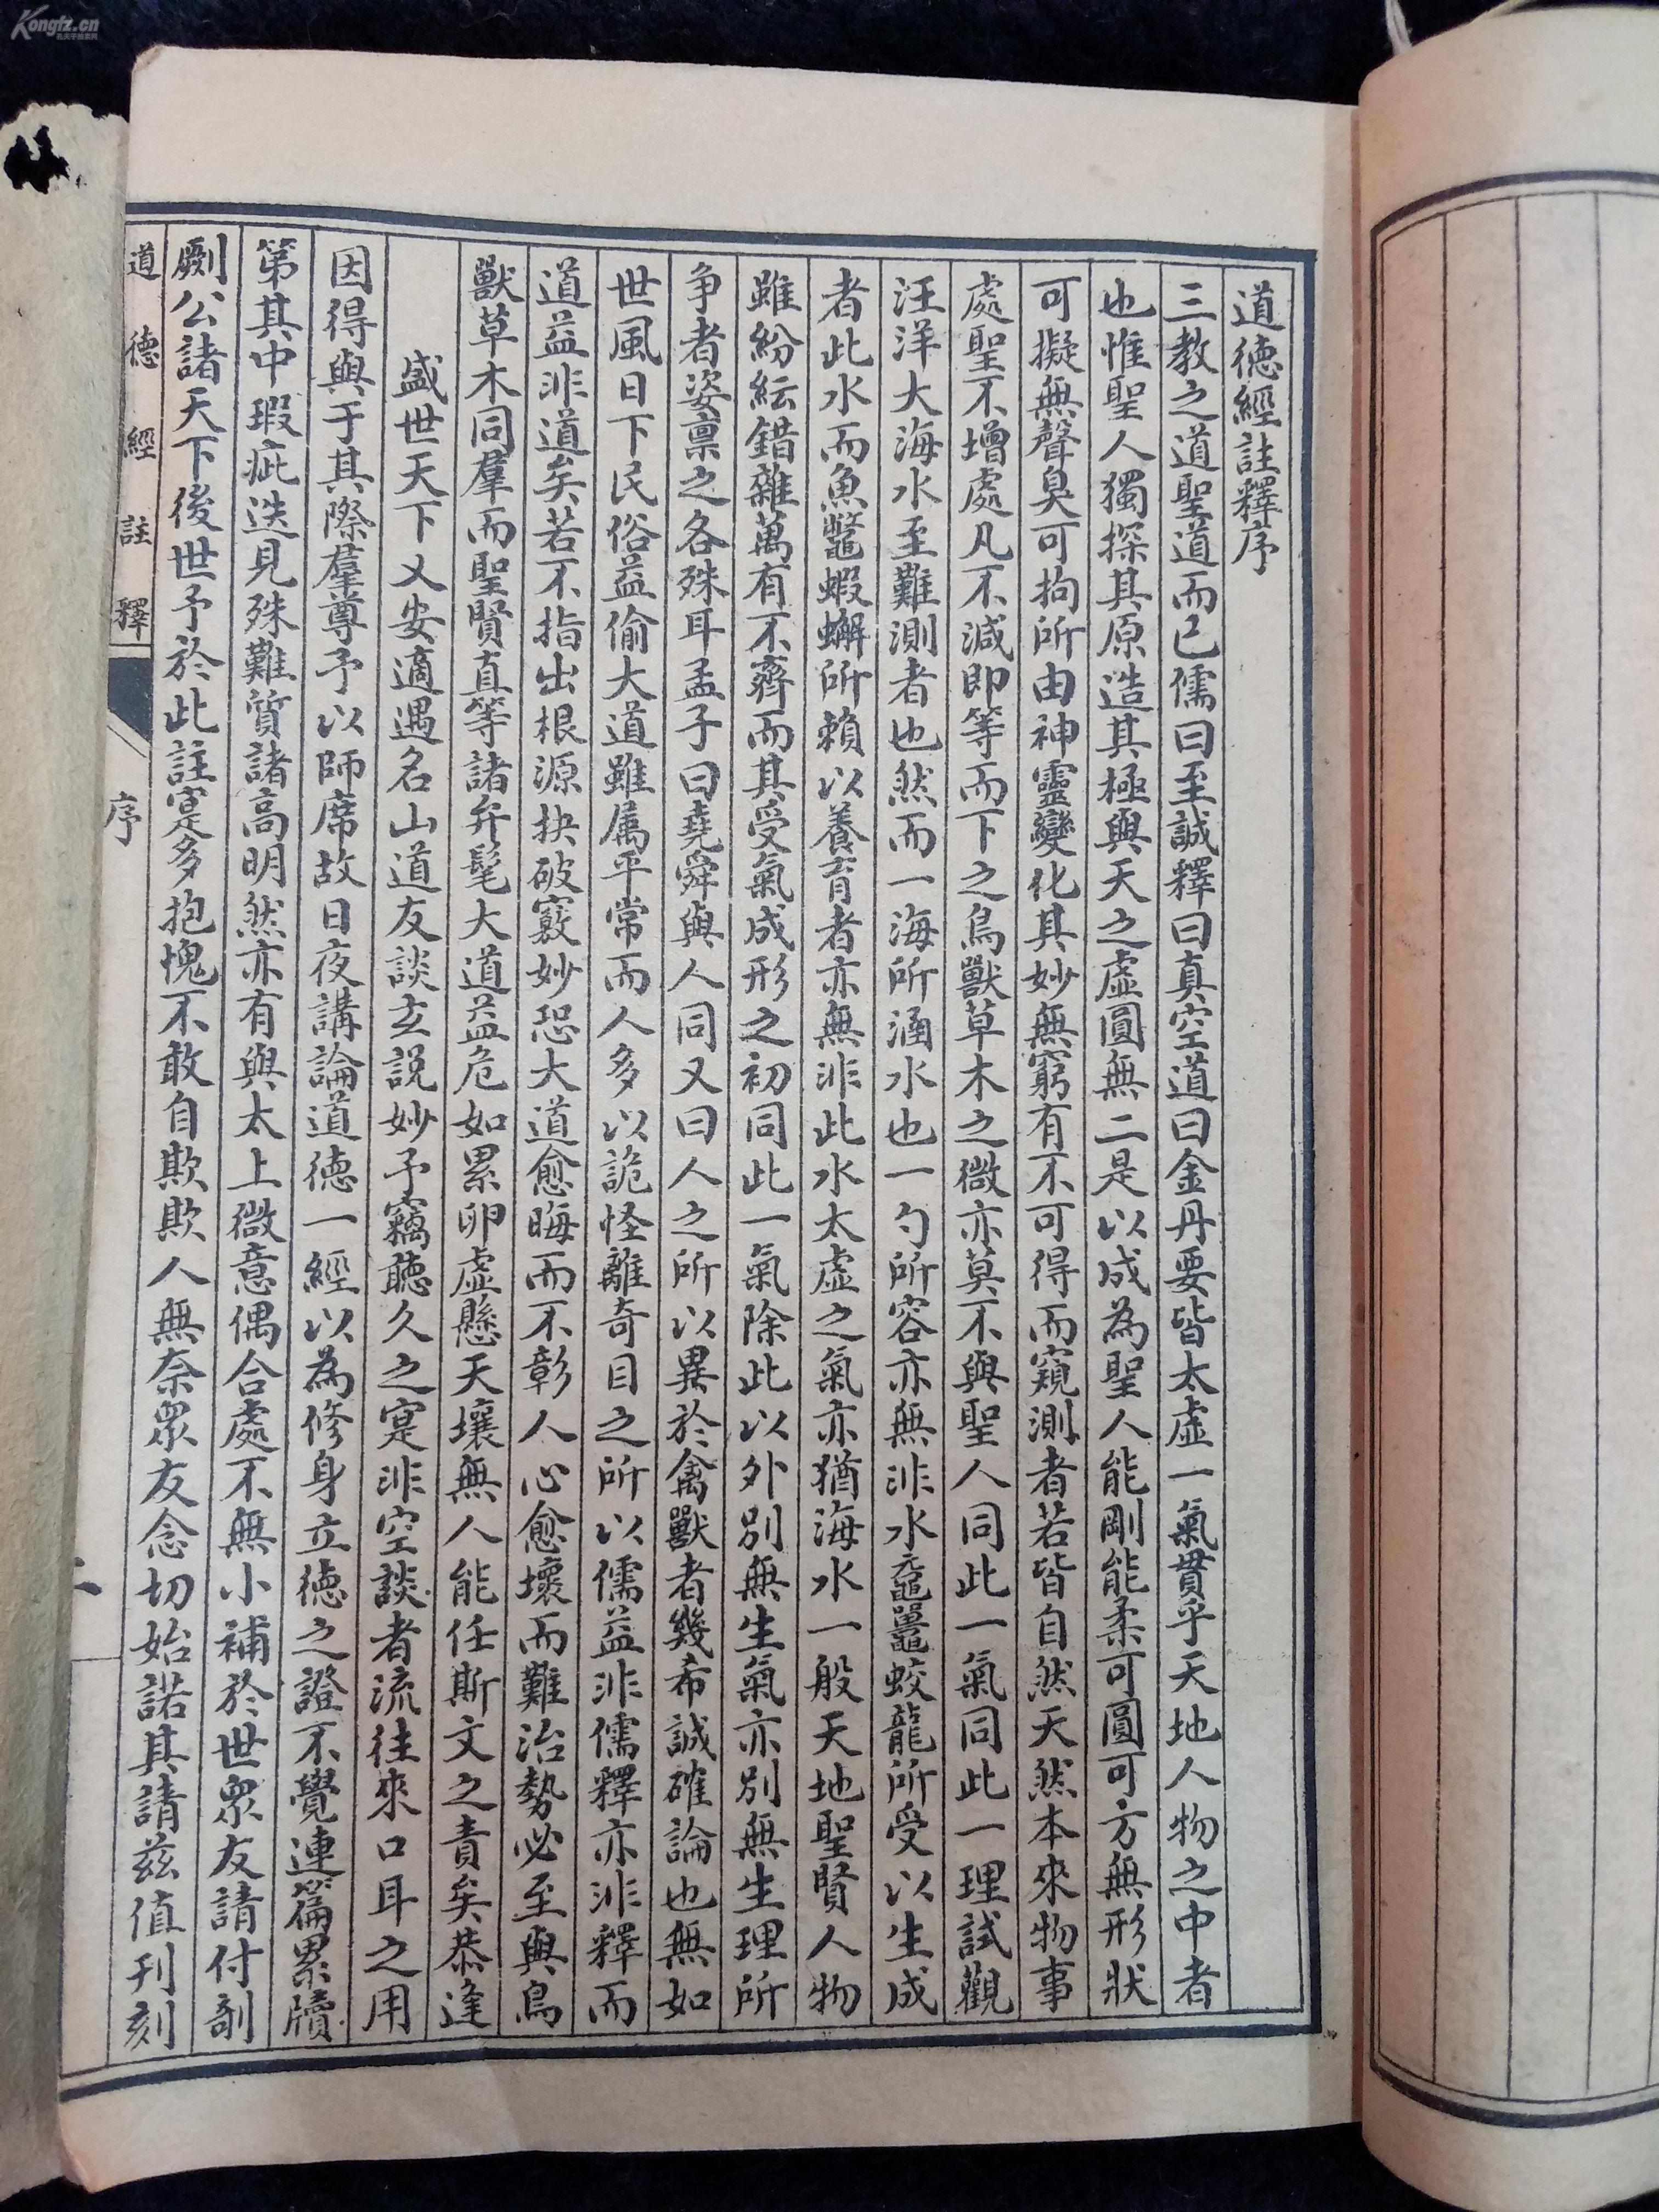 道德經註釋序
三教之道聖道而已儒曰至誠釋曰真空道曰金丹要皆太虛一氣貫乎天地人物之中者
也惟聖人獨探其原造其極與天之虛圓無二是以成為聖人能剛能柔可圓可方無形狀
可擬無聲臭可拘所由神靈變化其妙無窮有不可得而窺測者若皆自然天然本來物事
處聖不增處凡不減即等而下之鳥獸草木之微亦莫不與聖人同此一氣同此一理試觀
汪洋大海水至難測者也然而一海所涵水也一勺所容亦無非水黿鼉蛟龍所受以生成
者此水而魚鼈蝦蠏所賴以養育者亦無非此水太虛之氣亦猶海水一般天地聖賢人物
雖紛紜錯雜萬有不齊而其受氣成形之初同此一氣除此以外別無生氣亦別無生理所
争者姿禀之各殊耳孟子曰堯舜與人同又曰人之所以異於禽獸者幾希誠確論也無如
世風日下民俗益偷大道雖属平常而人多以詭怪離奇目之所以儒益非儒釋亦非釋而
道益非道矣若不指出根源抉破竅妙恐大道愈晦而不彰人心愈壞而難治勢必至與鳥
獸草木同羣而聖賢直等諸弁髦大道益危如累卵虛懸天壤無人能任斯文之責矣恭逢
盛世天下乂安適遇名山道友談玄說妙予竊聽久之寔非空談者流往來口耳之用
因得與于其際羣尊予以師席故日夜講論道德一經以為修身立德之證不覺連篇累牘
第其中瑕疵迭見殊難質諸高明然亦有與太上微意偶合處不無小補於世眾友請付剞
劂公諸天下後世予於此註寔多抱愧不敢自欺欺人無奈眾友念切始諾其請茲值刊刻
道德經註釋
序
Kongfz.cn